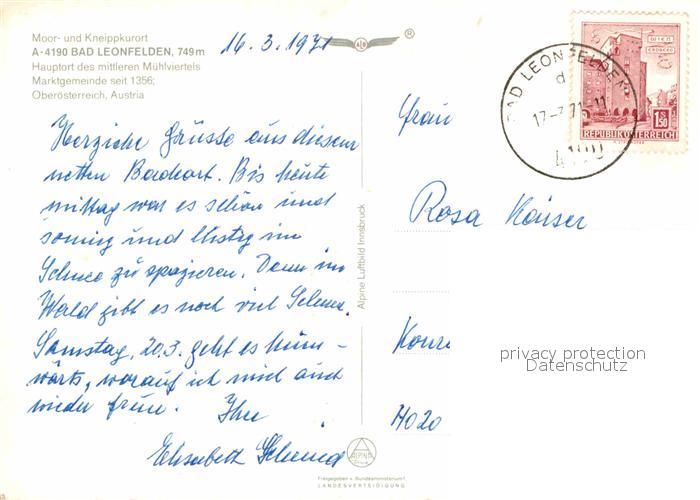 Moor- und Kneippkurort
A-4190 BAD LEONFELDEN, 749 m
Hauptort des mittleren Mühlviertels
Marktgemeinde seit 1356;
Oberösterreich, Austria
16.3.1971
®
Herzliche Grüsse aus diesem
netten Badeort. Bis heute
mittag war es schön und
sonnig und lustig im
Schnee zu spazieren. Denn im
Wald gibt es noch viel Schnee.
Samstag, 20.3. geht es heim-
wärts, worauf ich mich auch
wieder freue. Ihre
Elisabeth Schmid
Alpine Luftbild Innsbruck
ALPINE
Freigegeben v. Bundesministerium f.
LANDESVERTEIDIGUNG
BAD LEONFELDEN
d
17.-3.71-11
4190
WIEN
ERDBERG
S 1.50
REPUBLIK ÖSTERREICH
Frau
Rosa Kaiser
Konr
4020
privacy protection
Datenschutz